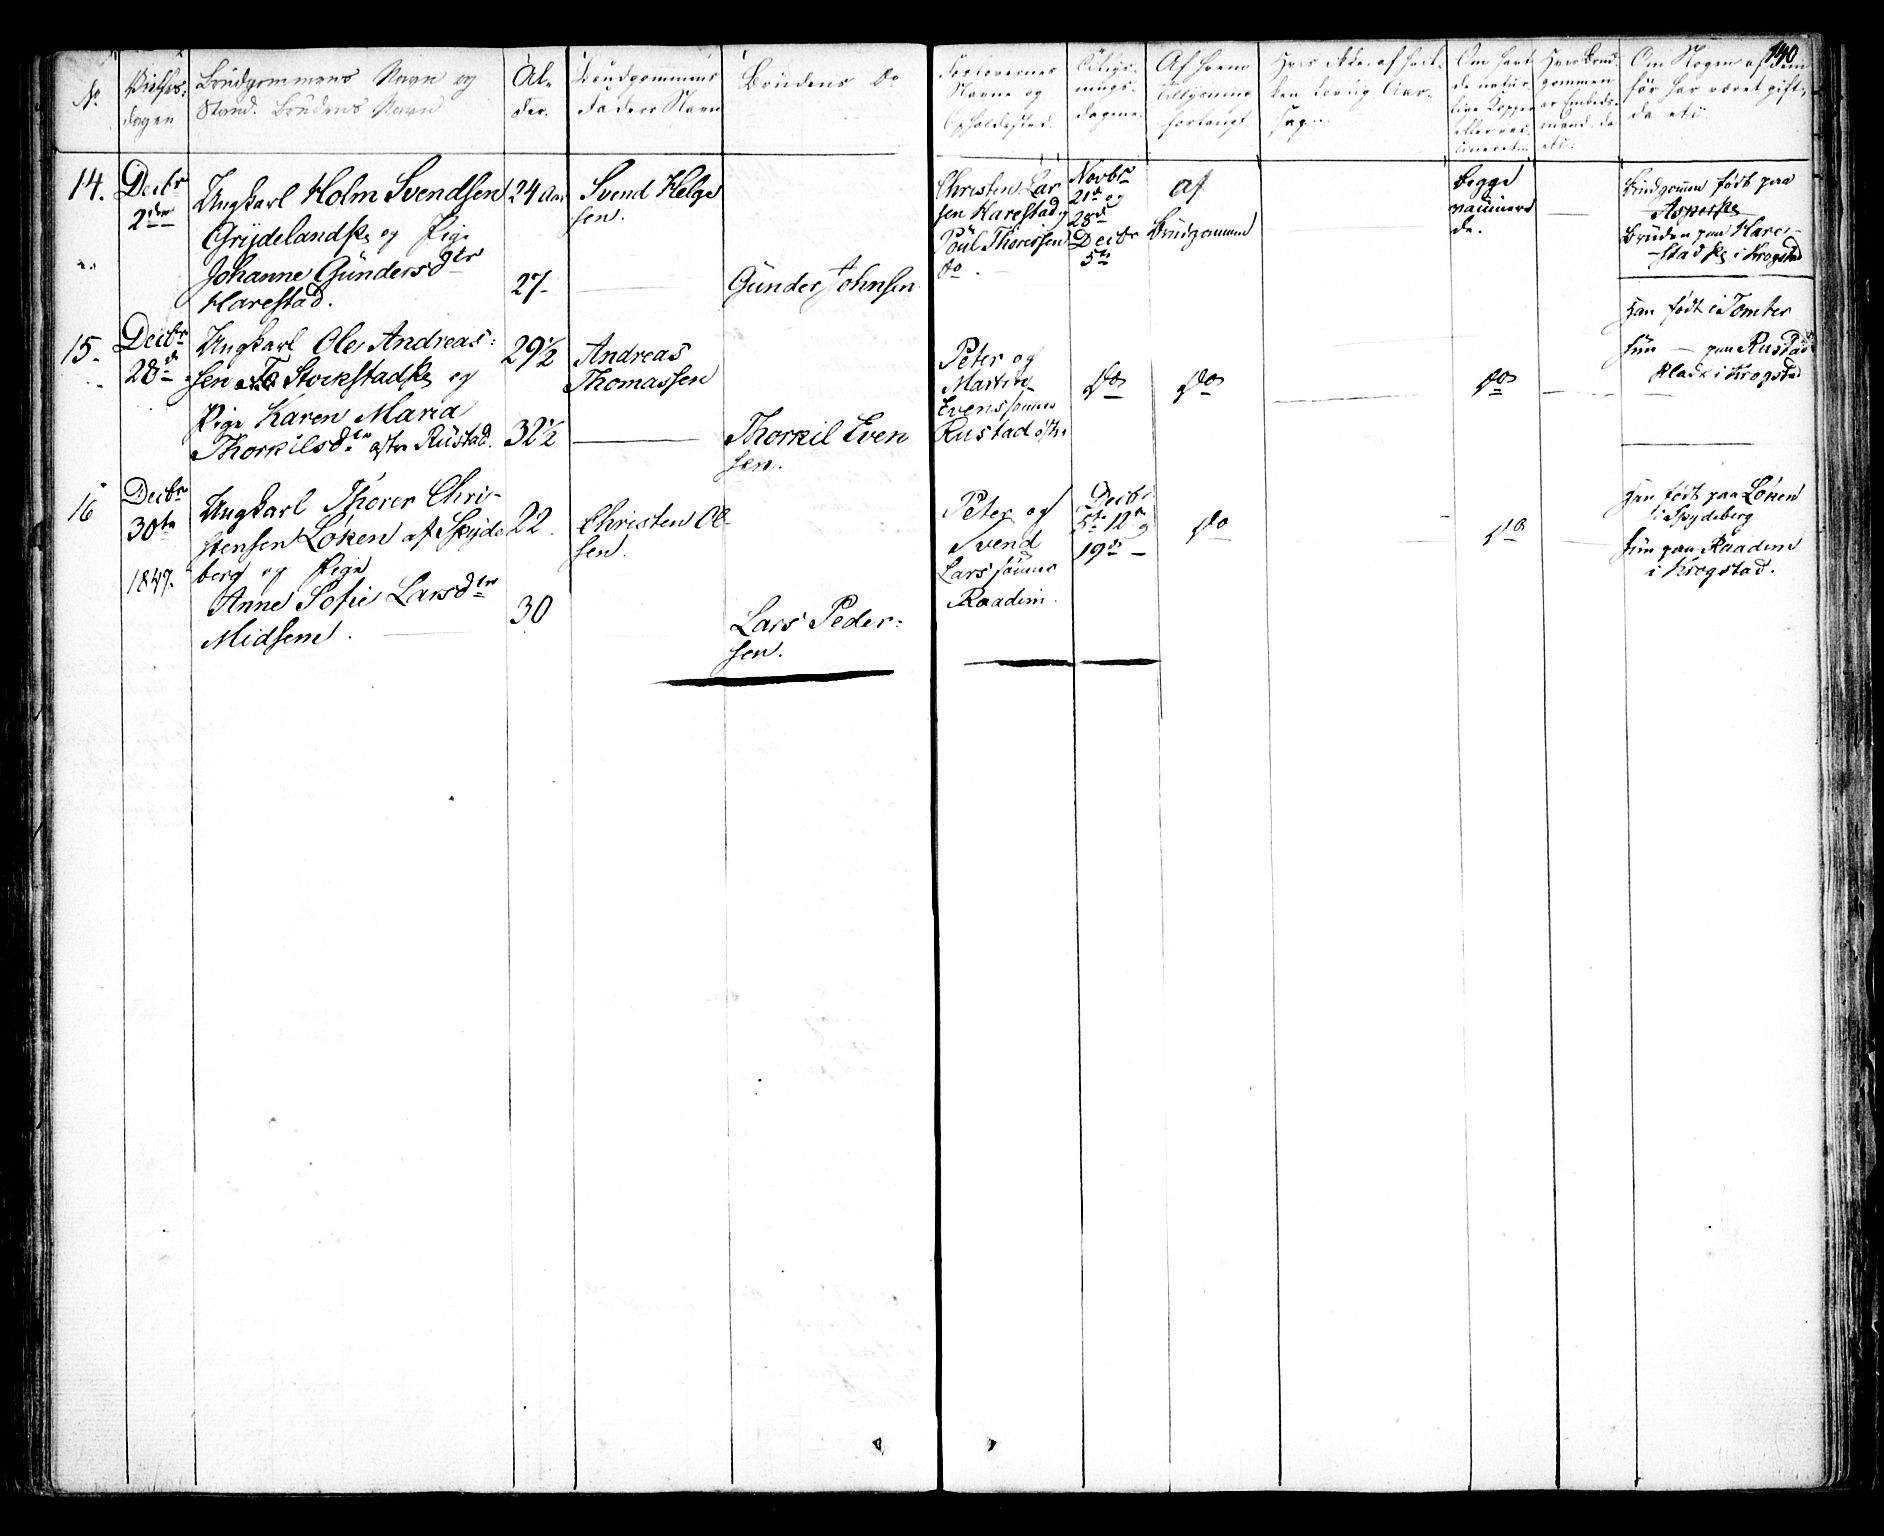 140
No
Vielses-
dagen
Brudgommens Navn og
Stand. Brudens Navn
Al-
der.
Brudgommens
Faders Navn
Brudens Do
Forlovernes
Navne og
Opholdssted.
Tillys-
nings-
dagene
Af hvem
Tillysning
forlangt
Hvis ikke, af hvil-
ken lovlig Aar-
sag
Om havt
de natur-
lige Kopper
eller vac-
cineret
Hvis Brud-
gommen
er Embeds-
mand, da
etc:
Om Nogen af dem
før har været gift,
da etc:
14.
Decbr
2den
Ungkarl Holm Svendsen
Gryjdelandsk og Pige
Johanne Gundersdtr
Harestad.
24 Aar
27-
Svend Helge
sen.
Gunder Johnsen
Christen Lar
sen Harestad og
Poul Thoressen
do
Novbr
21de og
28de
Decbr
5te
af
Brudgommen
Begge
vaccinere
de.
Brudgommen født paa
Aspesk
Bruden paa Hare-
stad sk i Krogstad
15.
Decbr
28de
Ungkarl Ole Andreas-
sen Stockstadsk og
Pige Karen Maria
Thorkilsdtr østre Rustad.
29½
32½
Andreas
Thomassen
Thorkil Even
sen.
Peter og
Martin
Evenssønner
Rustad østre
Do
Do
Do
Han født i Tomter
Hun — paa Rustad
Plads i Krogstad
16
Decbr
30te
1847.
Ungkarl Thorer Chri-
stensen Løken af Spyde
berg og Pige
Anne Sofie Larsdtr
Midsem.
22
30
Christen Ol-
sen.
Lars Peder-
sen.
Peter og
Svend
Larssønner
Raadim.
Decbr
5te 12te og
19de —
Do
Do
Han født paa Løken
i Spydeberg
Hun paa Raadim
i Krogstad.